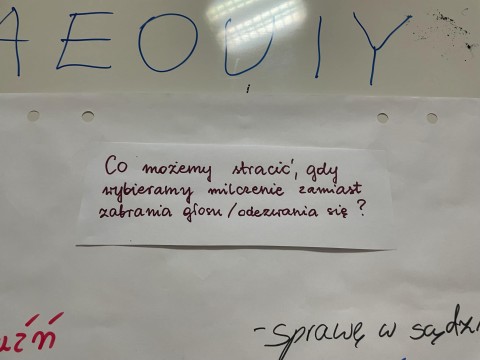 A E O U I Y
Co możemy stracić, gdy
wybieramy milczenie zamiast
zabrania głosu / odezwania się?
- sprawę w sądzi